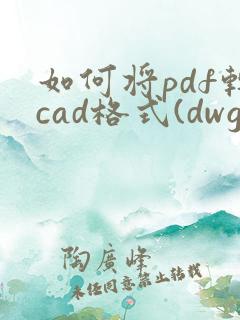 如何将pdf转
cad格式(dwg
陶廣峰
未经同意禁止转载